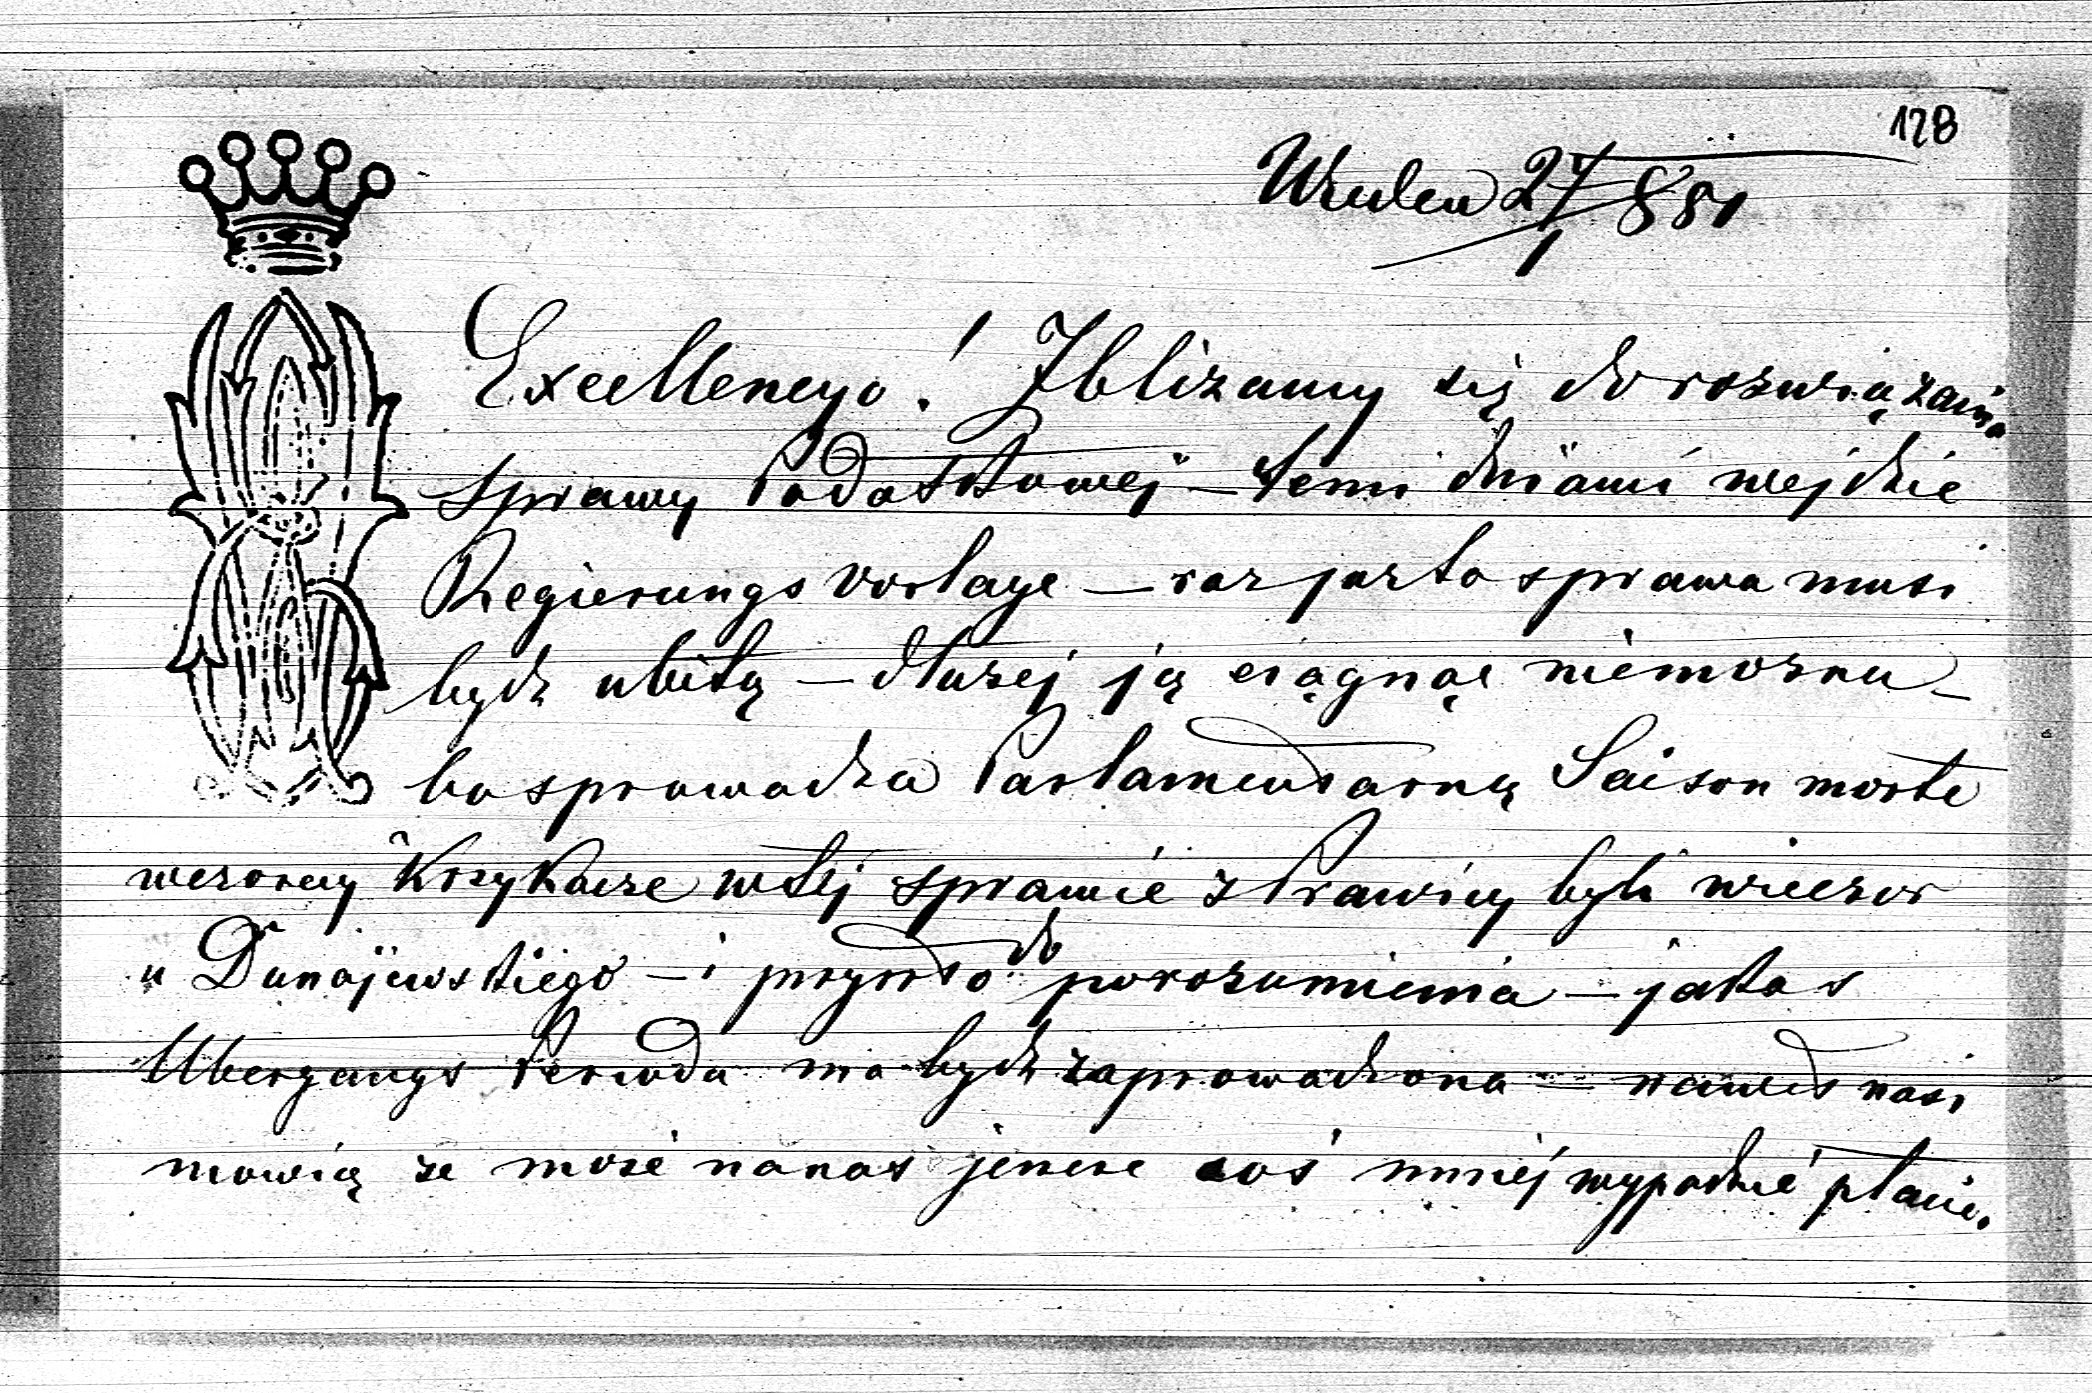 128
Wieden 27/1 881
Excellencyo! Zblizamy się do rozwiązania
sprawy Podatkowej – temi dniami wejdzie
Regierungs Vorlage – raz juz ta sprawa musi
bydz ubitą – dłuzej ją ciągnąć niemozna –
bo sprowadza Parlamentarną Saison morte
wczoraj Krzykacze w tej sprawie z Prawicy byli wieczor
u Dunajewskiego – i przyszło do porozumienia – jakas
Ubergangs Perioda ma bydz zaprowadzona – nawet nasi
mowią ze może nanas jeszcze coś mniej wypadnie płacic.